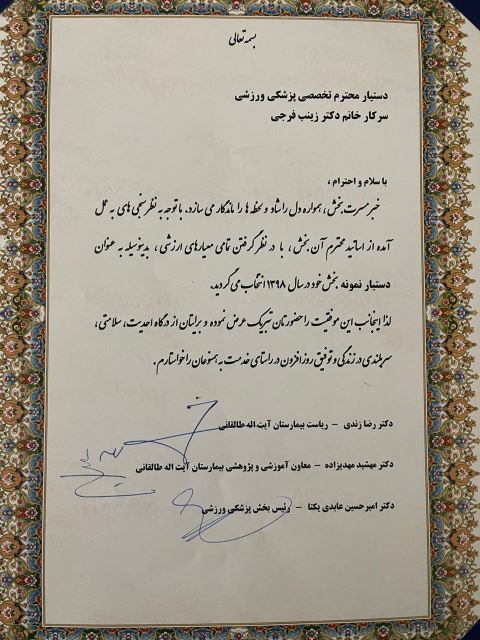 بسمه تعالی
دستیار محترم تخصصی پزشکی ورزشی
سرکار خانم دکتر زینب فرجی
با سلام و احترام ،
خبر مسرت بخش ، همواره دل را شاد و لحظه ها را ماندگار می سازد. با توجه به نظر سنجی های به عمل
آمده از اساتید محترم آن بخش ، با در نظر گرفتن تمامی معیارهای ارزشی ، بدینوسیله به عنوان
دستیار نمونه بخش خود در سال ۱۳۹۸ انتخاب می گردید.
لذا اینجانب این موفقیت را حضورتان تبریک عرض نموده و برایتان از درگاه احدیت، سلامتی ،
سربلندی در زندگی و توفیق روز افزون در راستای خدمت به همنوعان را خواستارم .
دکتر رضا زندی - ریاست بیمارستان آیت اله طالقانی
دکتر مهشید مهدیزاده - معاون آموزشی و پژوهشی بیمارستان آیت اله طالقانی
دکتر امیرحسین عابدی یکتا - رئیس بخش پزشکی ورزشی